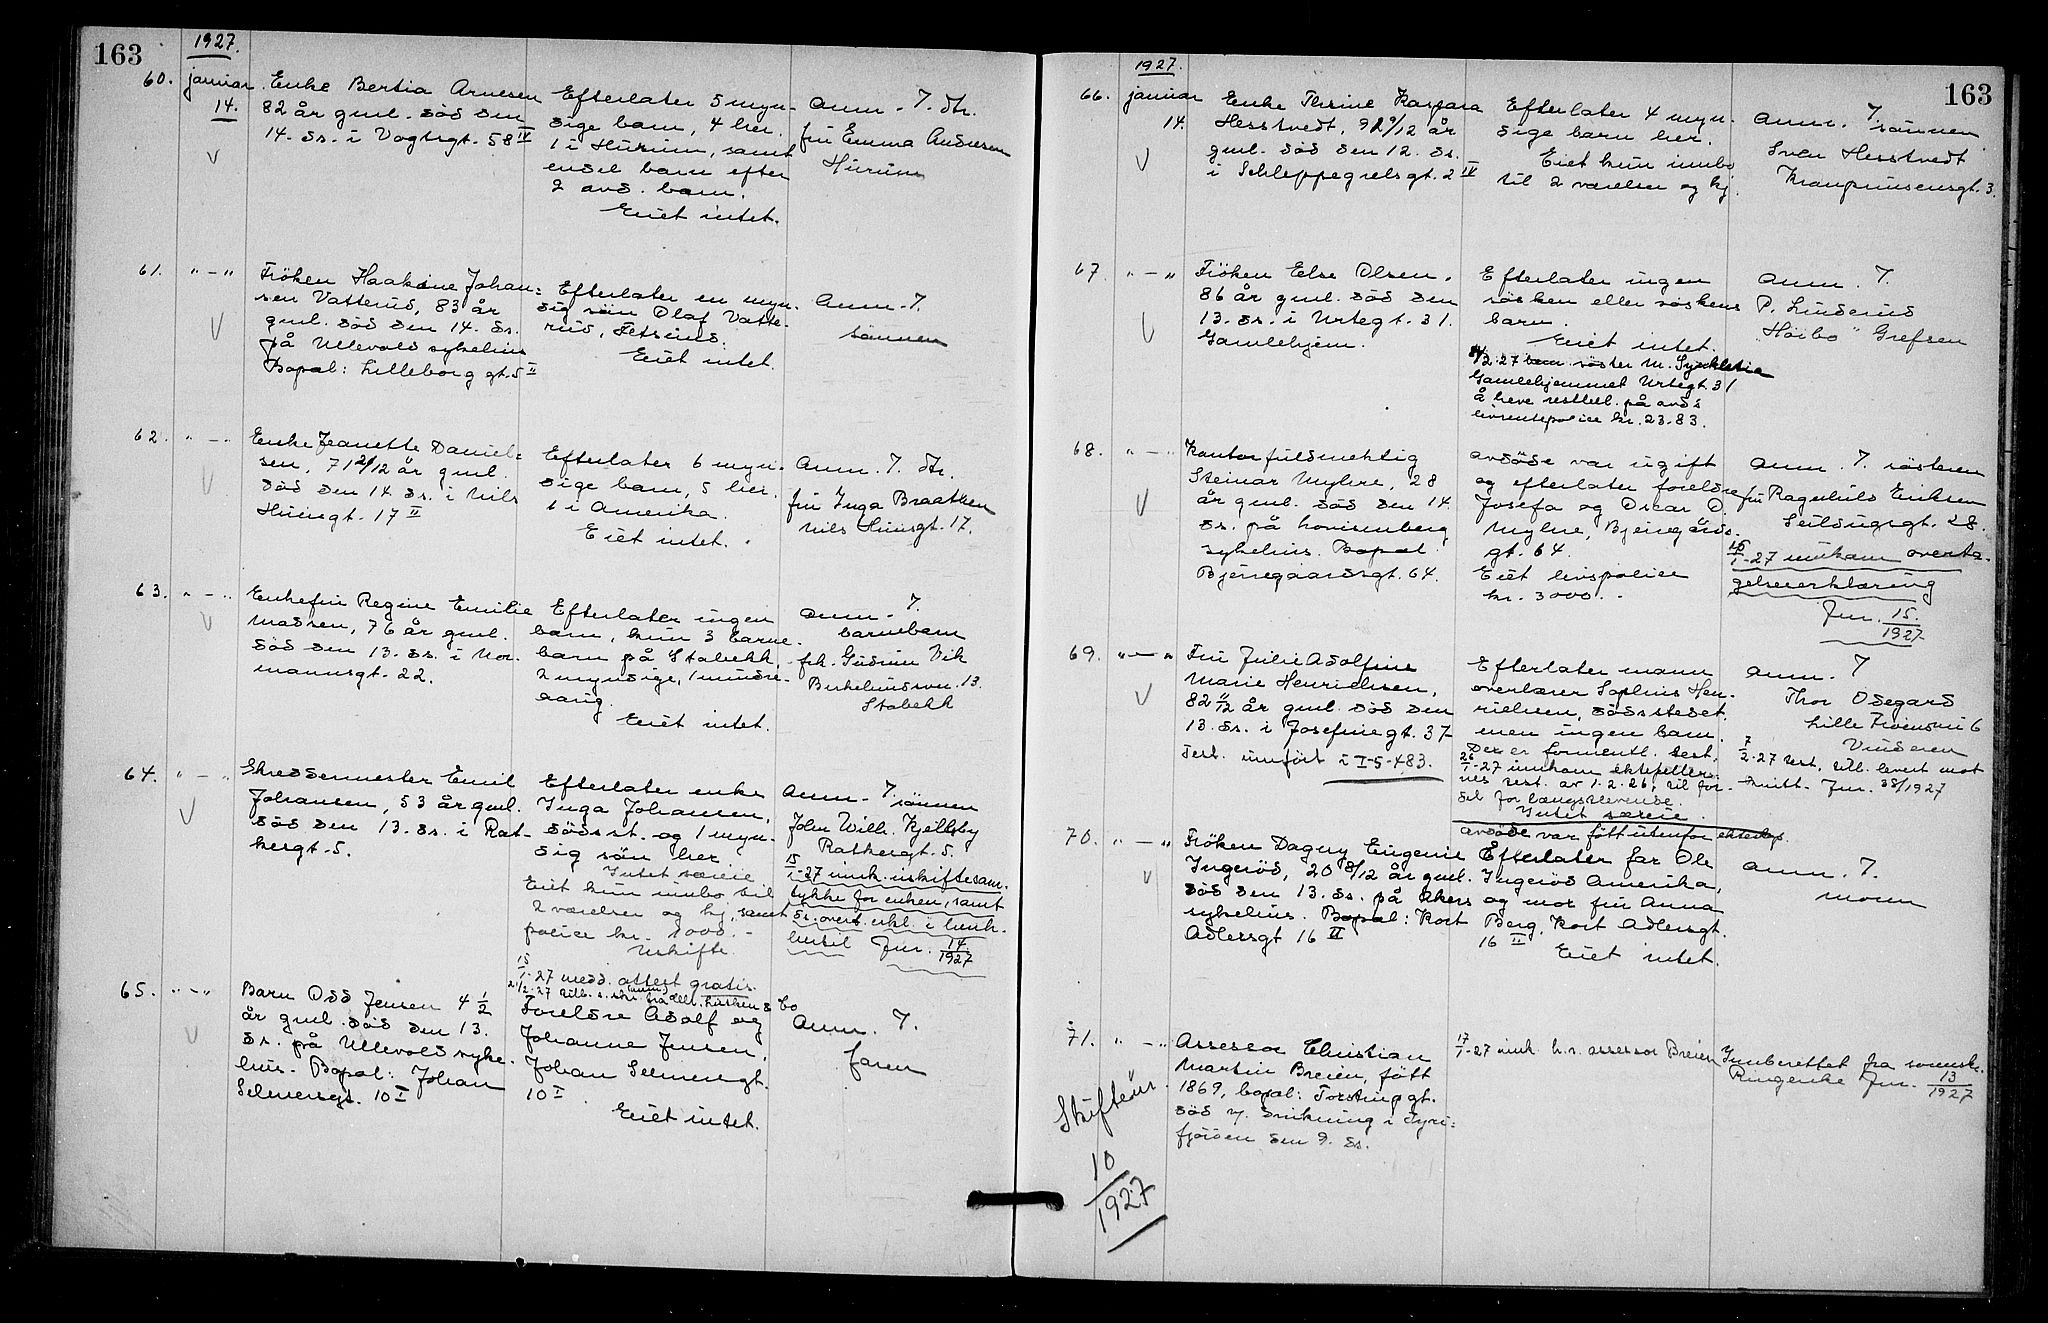 163
1927.
60.
januar
14.
Enke Bertia Arnesen
82 år gml. död den
14. ds. i Vogtsgt. 58 IV
Efterlater 5 myn-
dige barn, 4 her.
1 i Hurum, samt
endel barn efter
2 avd. barn.
Eiet intet.
Anm. 7. dtr.
fru Emma Andresen
Hurum
61.
" - "
Fröken Haakine Johan-
sen Vatterud, 83 år
gml. död den 14. ds.
på Ullevold sykehus
Bopæl: Lilleborg gt. 5 II
Efterlater en myn-
dig sön Olaf Vatte-
rud, Fetsund.
Eiet intet.
Anm. 7.
sönnen
62.
" - "
Enke Jeanette Daniel-
sen, 71 2/12 år gml.
död den 14. ds. i Nils
Huusgt. 17 II
Efterlater 6 myn-
dige barn, 5 her.
1 i Amerika.
Eiet intet.
Anm. 7. dtr.
fru Inga Braathen
Nils Huusgt. 17.
63.
" - "
Enkefru Regine Emilie
Madsen, 76 år gml.
död den 13. ds. i Nor-
mannsgt. 22.
Efterlater ingen
barn, kun 3 barne-
barn på Stabekk,
2 myndige, 1 mindre-
aarig.
Eiet intet.
Anm. 7.
barnebarn
frk. Gudrun Vik
Birkelundsvn. 13.
Stabekk
64.
" - "
Skreddermester Emil
Johansen, 53 år gml.
död den 13. ds. i Rat-
kesgt. 5.
Efterlater enke
Inga Johansen,
dödsst. og 1 myn-
dig sön her.
Intet særeie
Eiet kun innbo til
2 værelser og kj. samt
police kr. 1000.-
Uskifte.
15/1-27 medd. attest gratis.
Anm. 7. sönnen
John Wilh. Kjellsby
Ratkesgt. 5.
15/1-27 innk. uskiftesam-
tykke for enken, samt
ds. overt. erkl. i
Jnr. 14/1927
65.
" - "
Barn Odd Jensen 4 1/2
år gml. död den 13.
ds. på Ullevold syke-
hus. Bopæl: Johan
Selmersgt. 10 I
Foreldre Adolf og
Johanne Jensen,
Johan Selmersgt.
10 I.
Eiet intet.
Anm. 7.
faren
163
1927.
66.
januar
14.
Enke Thrine Kaspara
Hesstvedt, 92 9/12 år
gml. död den 12. ds.
i Schleppegrelsgt. 2 IV
Efterlater 4 myn-
dige barn her.
Eiet kun innbo
til 2 værelser og kj.
Anm. 7. sönnen
Sven Hesstvedt
Kronprinsensgt. 3.
67.
" - "
Fröken Else Olsen,
86 år gml. död den
13. ds. i Urtegt. 31.
Gamlehjem.
Efterlater ingen
sösken eller söskens
barn.
Eiet intet.
Gamlehjemmet Urtegt. 31
å heve resttill. på avd's
livrentepolice kr. 23.83.
Anm. 7.
P. Linderud
"Höibo" Grefsen
68.
" - "
Kontorfuldmektig
Steinar Myhre, 28
år gml. död den 14.
ds. på Lovisenberg
sykehus. Bopæl
Bjerregaardsgt. 64.
Avdöde var ugift
og efterlater foreldre
Josefa og Oscar O.
Myhre, Bjerregårds-
gt. 64.
Eiet livspolice
kr. 3000.-
Anm. 7. sösteren
fru Ragnhild Eriksen
Seildugsgt. 28.
15/1-27 innkom overta-
gelseserklæring
Jnr. 15/1927
69.
" - "
Fru Julie Adolfine
Marie Henrichsen,
82 11/12 år gml. död den
13. ds. i Josefinegt. 37
Test. innfört i I-5-483.
Efterlater mann
overlærer Sophus Hen-
richsen, dödsstedet,
men ingen barn.
Der er formentl. test.
26/1-27 innkom ektefeller-
nes test. av 1.2.26, til for-
del for længstlevende.
Intet særeie.
Anm. 7
Thor Odegard
Lille Frönsvei 6
Vinderen
7/2-27 test. tilb. levert mot
kvitt. Jnr. 38/1927
70.
" - "
Fröken Dagny Eugenie
Ingeröd, 20 8/12 år gml.
död den 13. ds. på Akers
sykehus. Bopæl: Kort
Adlersgt 16 II
avdöde var fött utenfor ekteskap.
Efterlater far Ole
Ingeröd Amerika,
og mor fru Anna
Berg, Kort Adlersgt.
16 II
Eiet intet.
Anm. 7.
moren
71.
" - "
Skifteður.
10/1927
Assessor Christian
Martin Breien, fött
1869, bopæl: Torstrupgt.
död v. drukning i Tyri-
fjorden den 9. ds.
17/1-27 innk. h.r. assessor Breien
Innberettet fra sorenskr.
Ringerike Jnr. 13/1927